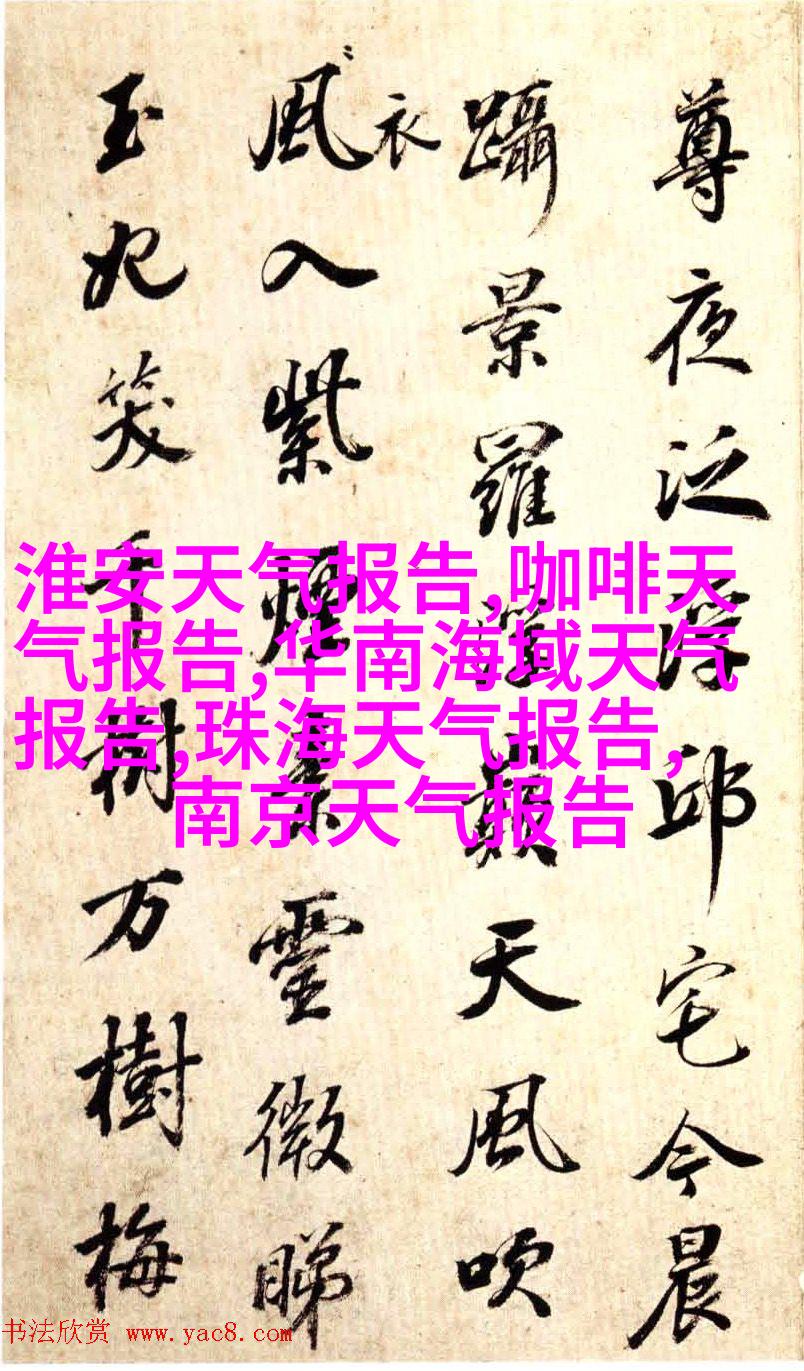 尊夜泛浮邱宅今晨
躡景羅巔天風吹
衣
風入紫煙素靈微睇
玉妃笑千樹万樹梅
淮安天气报告,咖啡天
气报告,华南海域天气
报告,珠海天气报告,
南京天气报告
书法欣赏 www.yac8.com